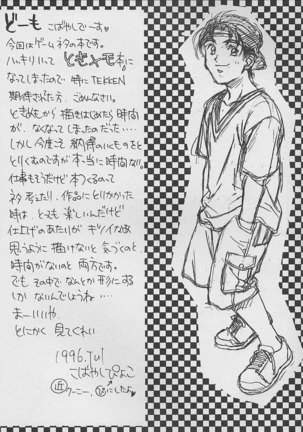 どーも こばやしでーす♡
今回はゲームネタの本です。
ハッキリいって ときメモ本に
なってしまたので 特に TEKKEN
期待されてた方 ごめんなさい。
ときめもから 描きはじめたら 時間
が、なくなってしまったのだった‥‥
しかし今度こそ 納得のいくものをと
とりくむのですが 本当に時間ない。
仕事もそうだけど 本つくるって
ネタ考えたり、作品にとりかかった
時は、とっても楽しいんだけど
仕上げのあたりが キツイなぁ
思うように描けないと 気づくのと
時間がないのと 両方です。
でも その中でなんとか形にする
しか ないんでしょうね‥‥
まーいいや.
とにかく 見てくれい
1996.Jul
こばやしぴょこ